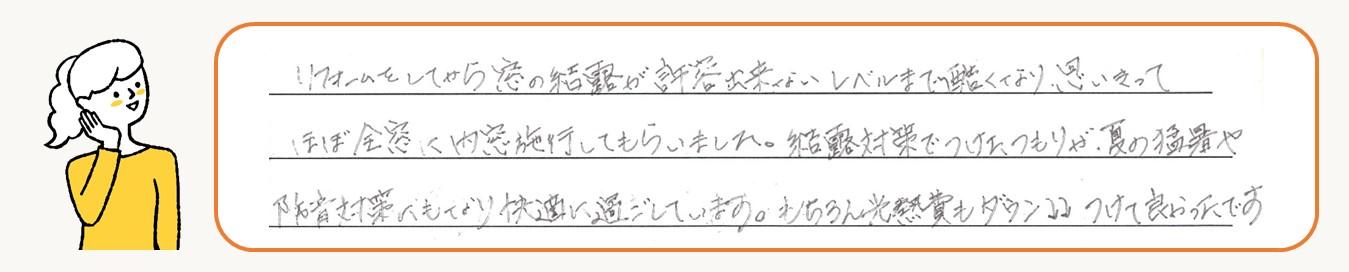 リフォームをしてから窓の結露が許容出来ないレベルまで酷くなり、思いきって
ほぼ全窓に内窓施行してもらいました。結露対策でつけたつもりが、夏の猛暑や
防音対策にもなり快適に過ごしています。もちろん光熱費もダウン↓↓ つけて良かったです